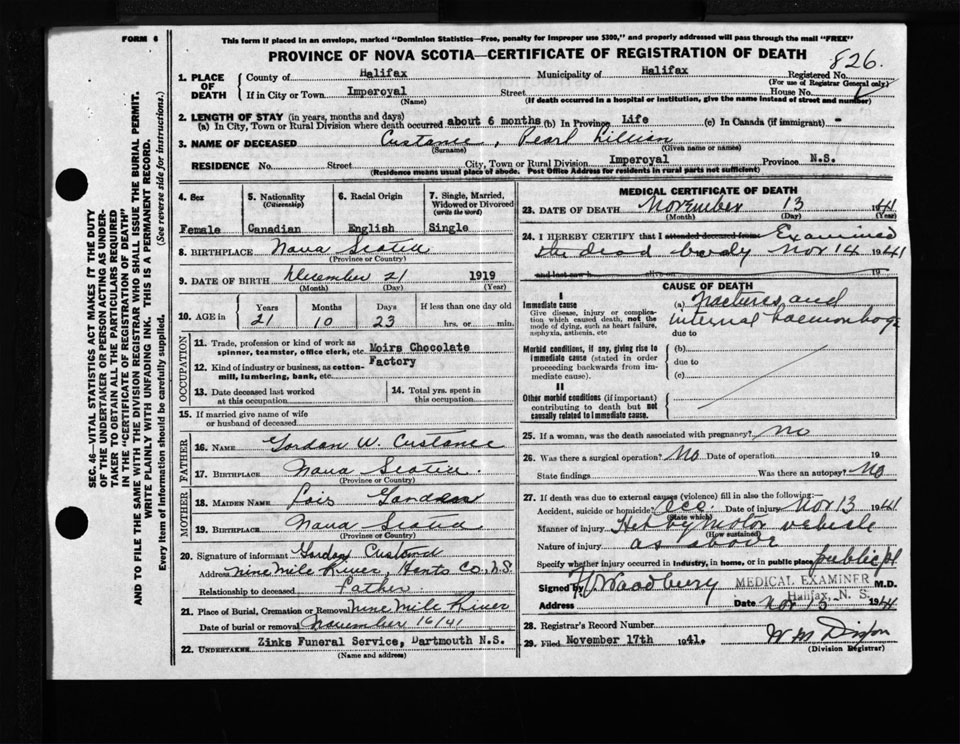 FORM 6
This form if placed in an envelope, marked "Dominion Statistics—Free, penalty for improper use $300," and properly addressed will pass through the mail "FREE"
PROVINCE OF NOVA SCOTIA—CERTIFICATE OF REGISTRATION OF DEATH
826.
1. PLACE OF DEATH
County of Halifax Municipality of Halifax Registered No.
(For use of Registrar General only)
If in City or Town Imperoyal Street House No.
(Name) (If death occurred in a hospital or institution, give the name instead of street and number)
2. LENGTH OF STAY (in years, months and days)
(a) In City, Town or Rural Division where death occurred about 6 months (b) In Province Life (c) In Canada (if immigrant) -
3. NAME OF DECEASED Custance, Pearl Lillian
(Surname) (Given name or names)
RESIDENCE No. Street City, Town or Rural Division Imperoyal Province N.S.
(Residence means usual place of abode. Post Office Address for residents in rural parts not sufficient)
4. Sex Female
5. Nationality (Citizenship) Canadian
6. Racial Origin English
7. Single, Married, Widowed or Divorced (write the word) Single
8. BIRTHPLACE Nova Scotia
(Province or Country)
9. DATE OF BIRTH December 21 1919
(Month) (Day) (Year)
10. AGE in Years 21 Months 10 Days 23 If less than one day old hrs. or min.
OCCUPATION
11. Trade, profession or kind of work as spinner, teamster, office clerk, etc. Moirs Chocolate
Factory
12. Kind of industry or business, as cotton-mill, lumbering, bank, etc.
13. Date deceased last worked at this occupation
14. Total yrs. spent in this occupation
15. If married give name of wife or husband of deceased
FATHER
16. NAME Gordan W. Custance
17. BIRTHPLACE Nova Scotia.
(Province or Country)
MOTHER
18. MAIDEN NAME Lois
19. BIRTHPLACE Nova Scotia
(Province or Country)
20. Signature of informant Gordon Custand
Address Nine Mile River, Hants Co., N.S.
Relationship to deceased Father
21. Place of Burial, Cremation or Removal Nine Mile River
Date of burial or removal November 16/41
22. UNDERTAKER Zinks Funeral Service, Dartmouth N.S.
(Name and address)
MEDICAL CERTIFICATE OF DEATH
23. DATE OF DEATH November 13 1941
(Month) (Day) (Year)
24. I HEREBY CERTIFY that I attended deceased from Examined
the dead body Nov 14 1941
and last saw h alive on 19
CAUSE OF DEATH
I
Immediate cause
Give disease, injury or complication which caused death, not the mode of dying, such as heart failure, asphyxia, asthenia, etc
(a) Fractures and
internal haemorrhage
due to
Morbid conditions, if any, giving rise to immediate cause (stated in order proceeding backwards from immediate cause).
(b)
due to
(c)
II
Other morbid conditions (if important) contributing to death but not causally related to immediate cause.
25. If a woman, was the death associated with pregnancy? No
26. Was there a surgical operation? No Date of operation 19
State findings Was there an autopsy? No
27. If death was due to external causes (violence) fill in also the following:—
Accident, suicide or homicide? Acc Date of injury Nov 13 1941
(State which)
Manner of injury Hit by Motor vehicle
(How sustained)
Nature of injury as above
Specify whether injury occurred in industry, in home, or in public place public pl
Signed by Woodbury MEDICAL EXAMINER M.D.
Halifax, N. S.
Address Date Nov 15 1941
28. Registrar's Record Number
29. Filed November 17th 1941. W M Dixon
(Division Registrar)
SEC. 46—VITAL STATISTICS ACT MAKES IT THE DUTY
OF THE UNDERTAKER OR PERSON ACTING AS UNDER-
TAKER TO OBTAIN ALL THE PARTICULARS REQUIRED
IN THE "CERTIFICATE OF REGISTRATION OF DEATH"
AND TO FILE THE SAME WITH THE DIVISION REGISTRAR WHO SHALL ISSUE THE BURIAL PERMIT.
WRITE PLAINLY WITH UNFADING INK. THIS IS A PERMANENT RECORD.
Every item of information should be carefully supplied. (See reverse side for instructions.)